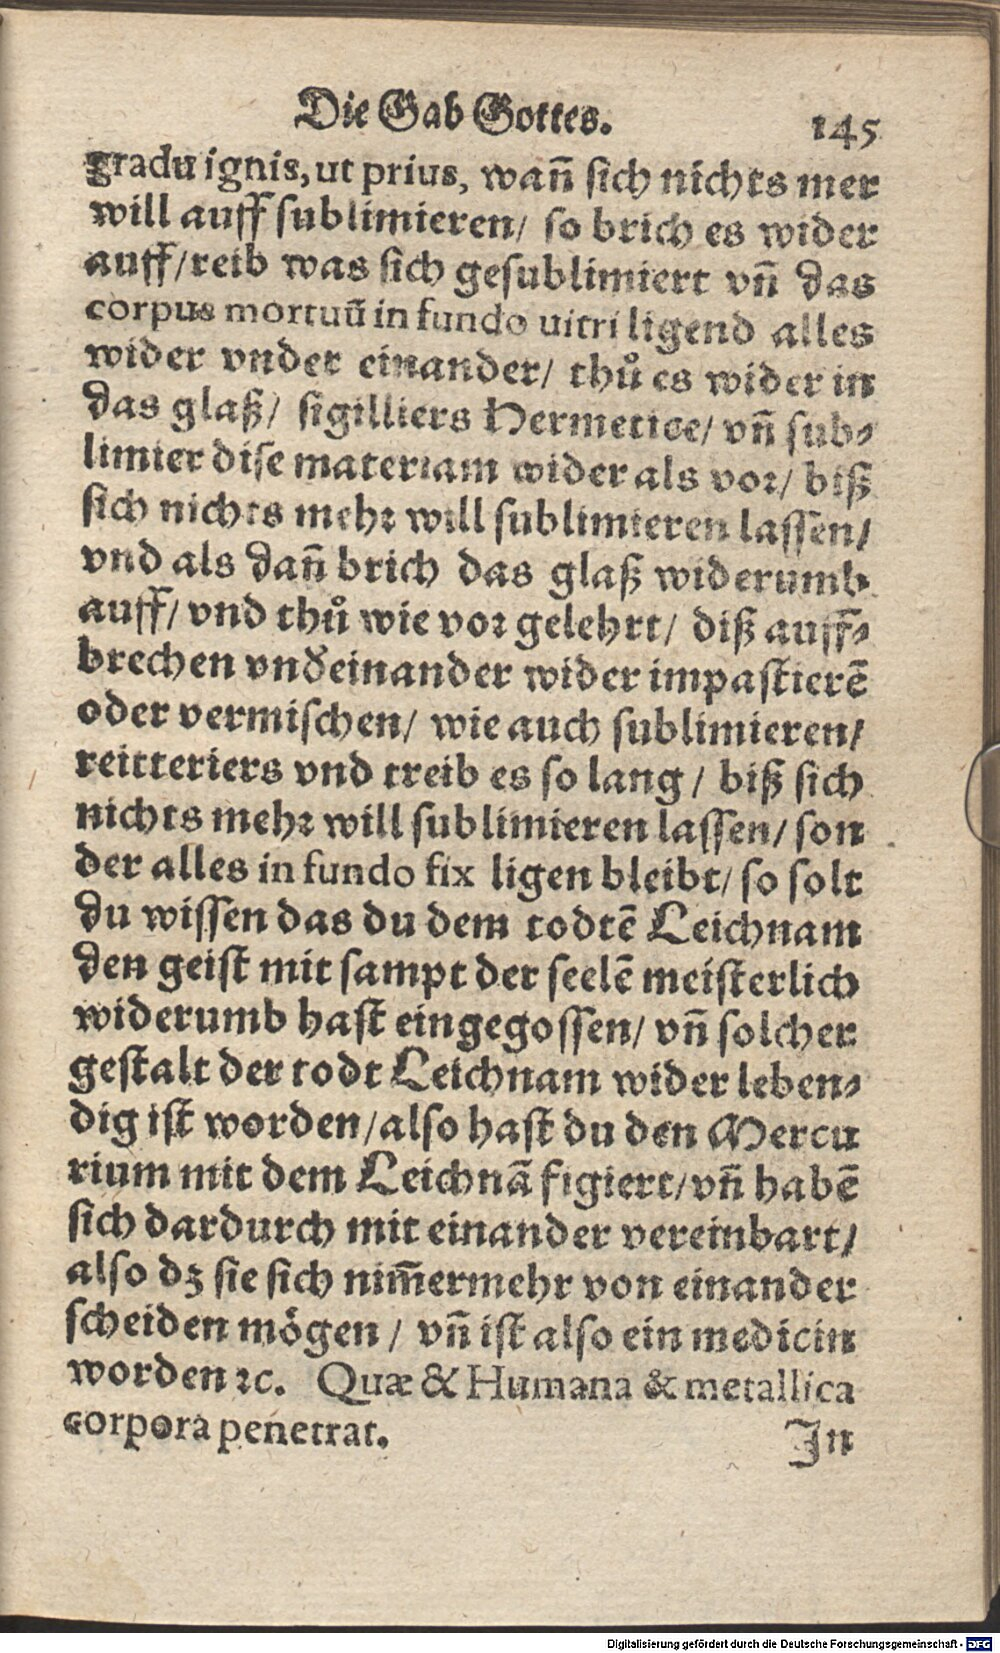 Die Gab Gottes. 145
gradu ignis, ut prius, wañ sich nichts mer
will auff sublimieren/ so brich es wider
auff/reib was sich gesublimiert vñ das
corpus mortuũ in fundo uitri ligend alles
wider vnder einander/ thů es wider in
das glaß/ sigilliers Hermetice/ vñ sub⸗
limier dise materiam wider als vor/ biß
sich nichts mehr will sublimieren lassen/
vnd als dañ brich das glaß widerumb
auff/ vnd thů wie vor gelehrt/ diß auff⸗
brechen vnd̕einander wider impastierẽ
oder vermischen/ wie auch sublimieren/
reitteriers vnd treib es so lang/ biß sich
nichts mehr will sublimieren lassen/ son
der alles in fundo fix ligen bleibt/ so solt
du wissen das du dem todtẽ Leichnam
den geist mit sampt der seelẽ meisterlich
widerumb hast eingegossen/ vñ solcher
gestalt der todt Leichnam wider leben⸗
dig ist worden/also hast du den Mercu
rium mit dem Leichnã figiert/vñ habẽ
sich dardurch mit einander vereinbart/
also dz sie sich nim̃ermehr von einander
scheiden mögen/ vñ ist also ein medicin
worden ꝛc. Quæ & Humana & metallica
corpora penetrat. In
Digitalisierung gefördert durch die Deutsche Forschungsgemeinschaft - DFG